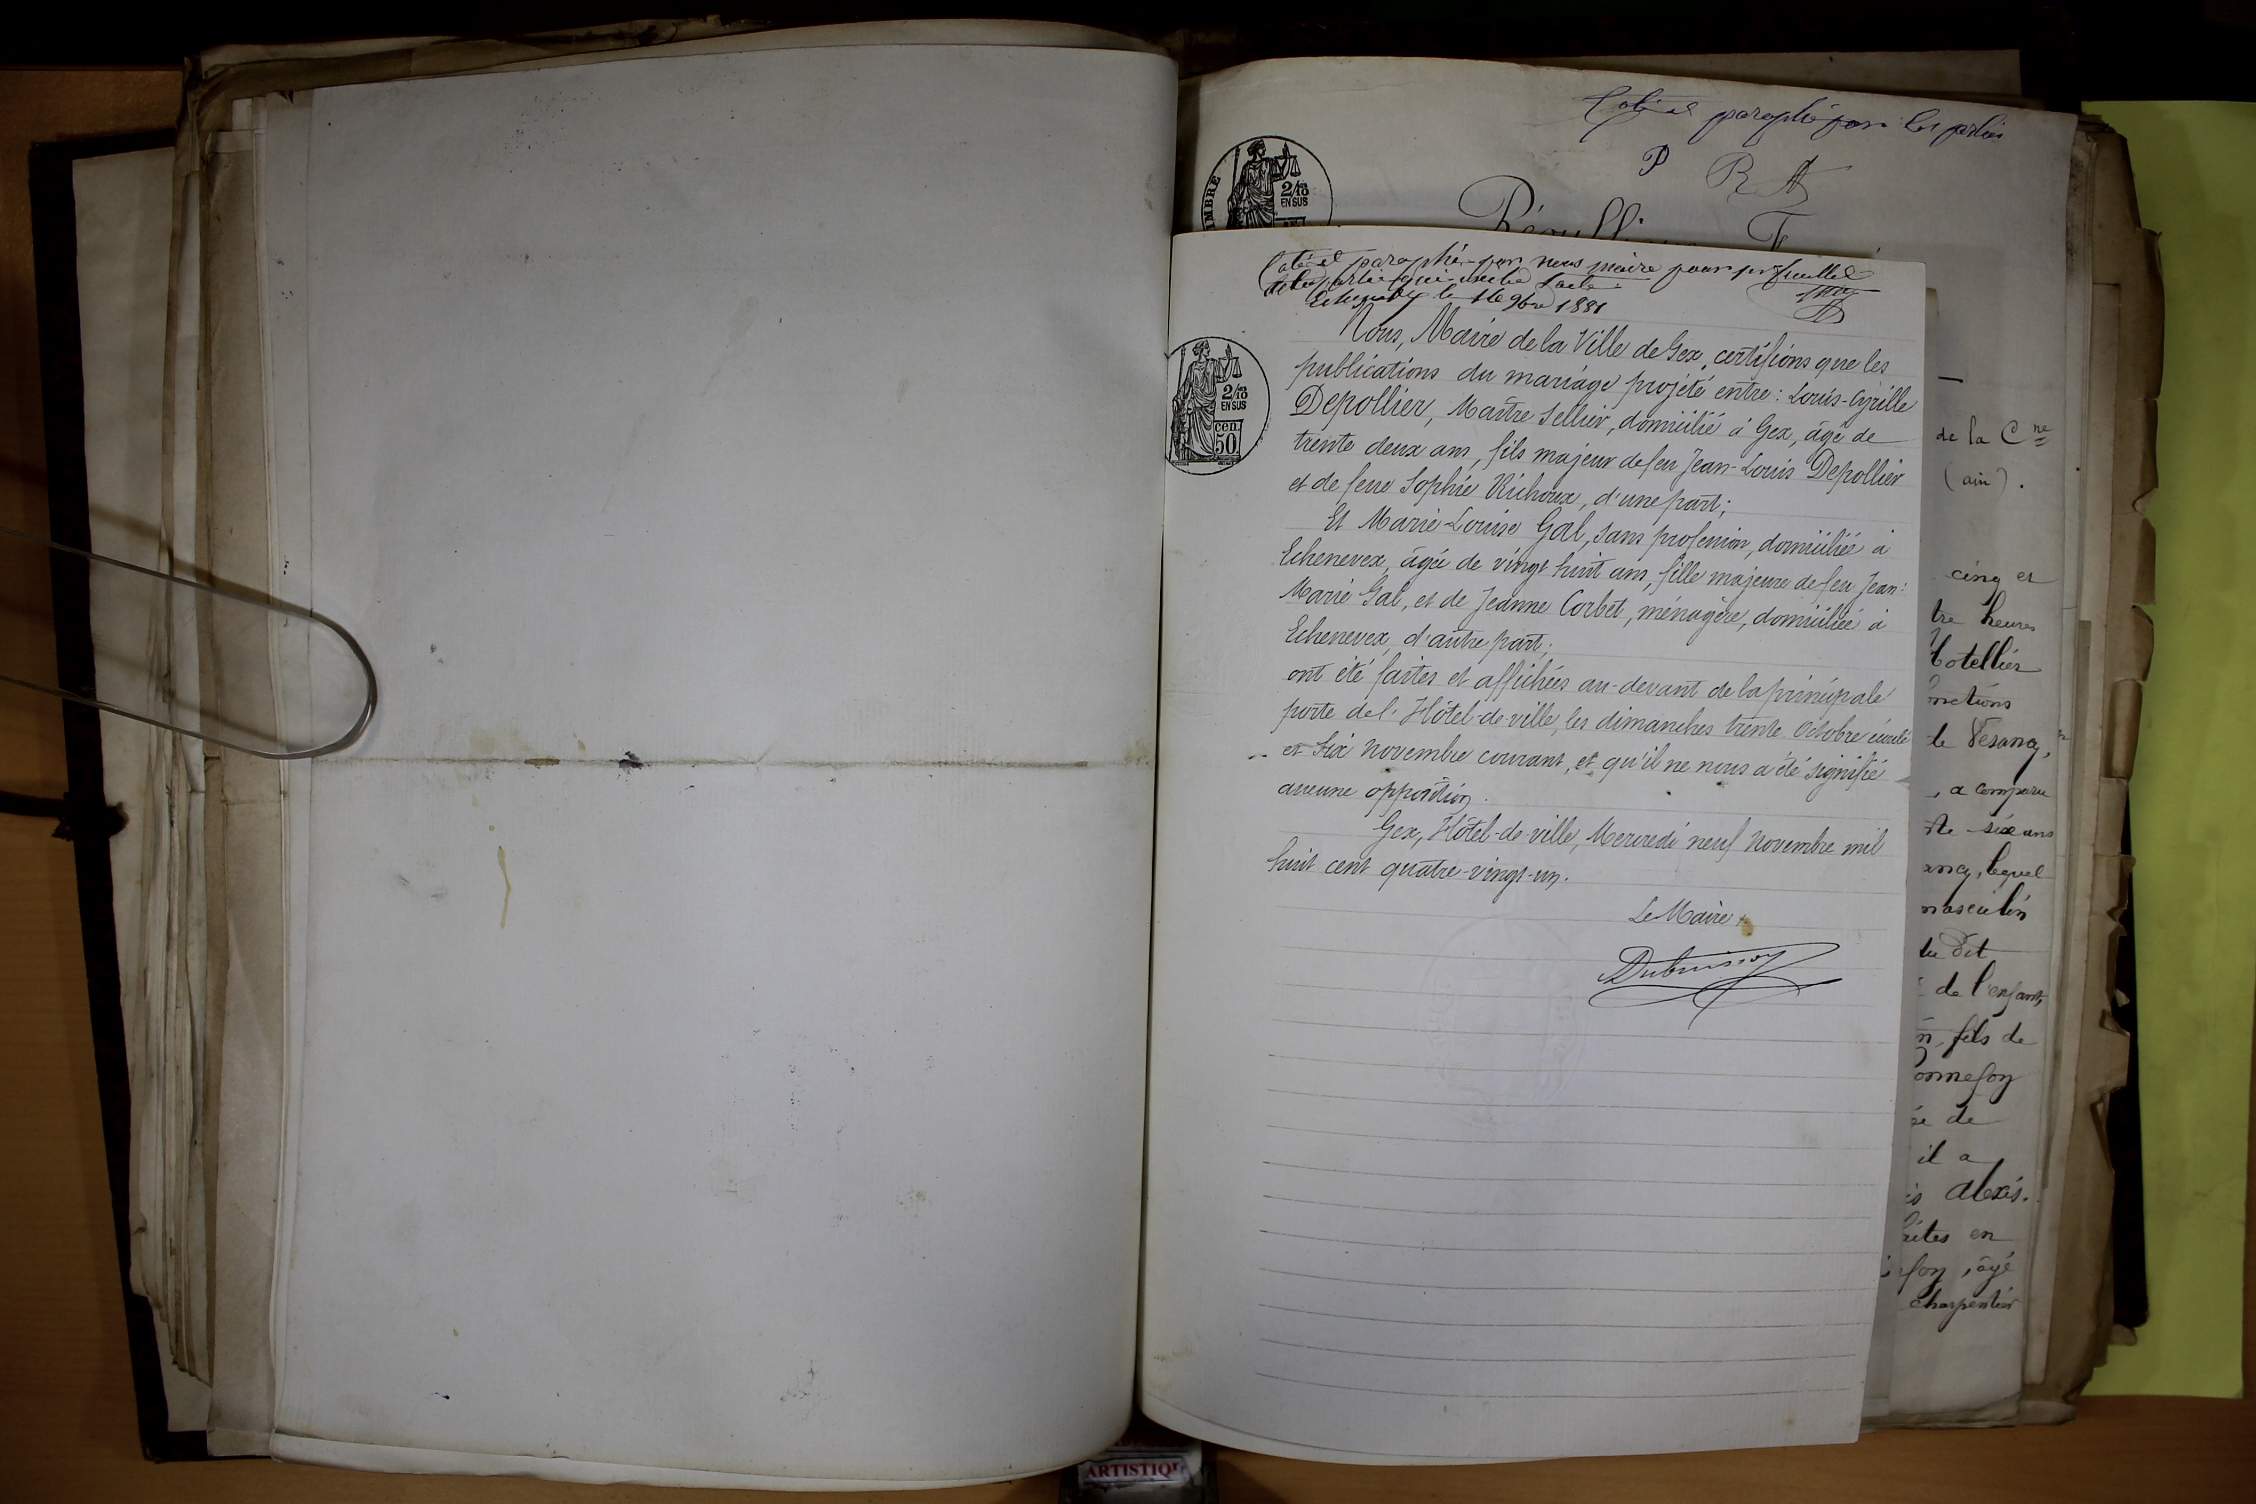 Coté et paraphé par les parties
P R A
IMBRE
2/10
EN SUS
Coté et paraphé par nous maire pour
Echenevex le 16 9bre 1881
2/10
EN SUS
cen.
50
Nous, Maire de la Ville de Gex, certifions que les
publications du mariage projeté entre : Louis-Cyrille
Depollier, Maître Sellier, domicilié à Gex, âgé de
trente deux ans, fils majeur de feu Jean-Louis Depollier
et de feue Sophie Richoux, d'une part ;
Et Marie-Louise Gal, sans profession, domiciliée à
Echenevex, âgée de vingt huit ans, fille majeure de feu Jean-
Marie Gal, et de Jeanne Corbet, ménagère, domiciliée à
Echenevex, d'autre part ;
ont été faites et affichées au-devant de la principale
porte de l'Hôtel-de-ville, les dimanches trente Octobre écoulé
et Six novembre courant, et qu'il ne nous a été signifié
aucune opposition.
Gex, Hôtel-de-ville, Mercredi neuf Novembre mil
huit cent quatre-vingt-un.
Le Maire
Dubuisson
de la Cne
(ain).
cinq et
tre heures
hotellier
nctions
de Vesancy,
, a comparu
nte-six ans
ancy, lequel
masculin
du dit
de l'enfant,
n, fils de
onnefoy
ée de
il a
is Alexis.
faites en
nefoy, âgé
charpentier
ARTISTIQ